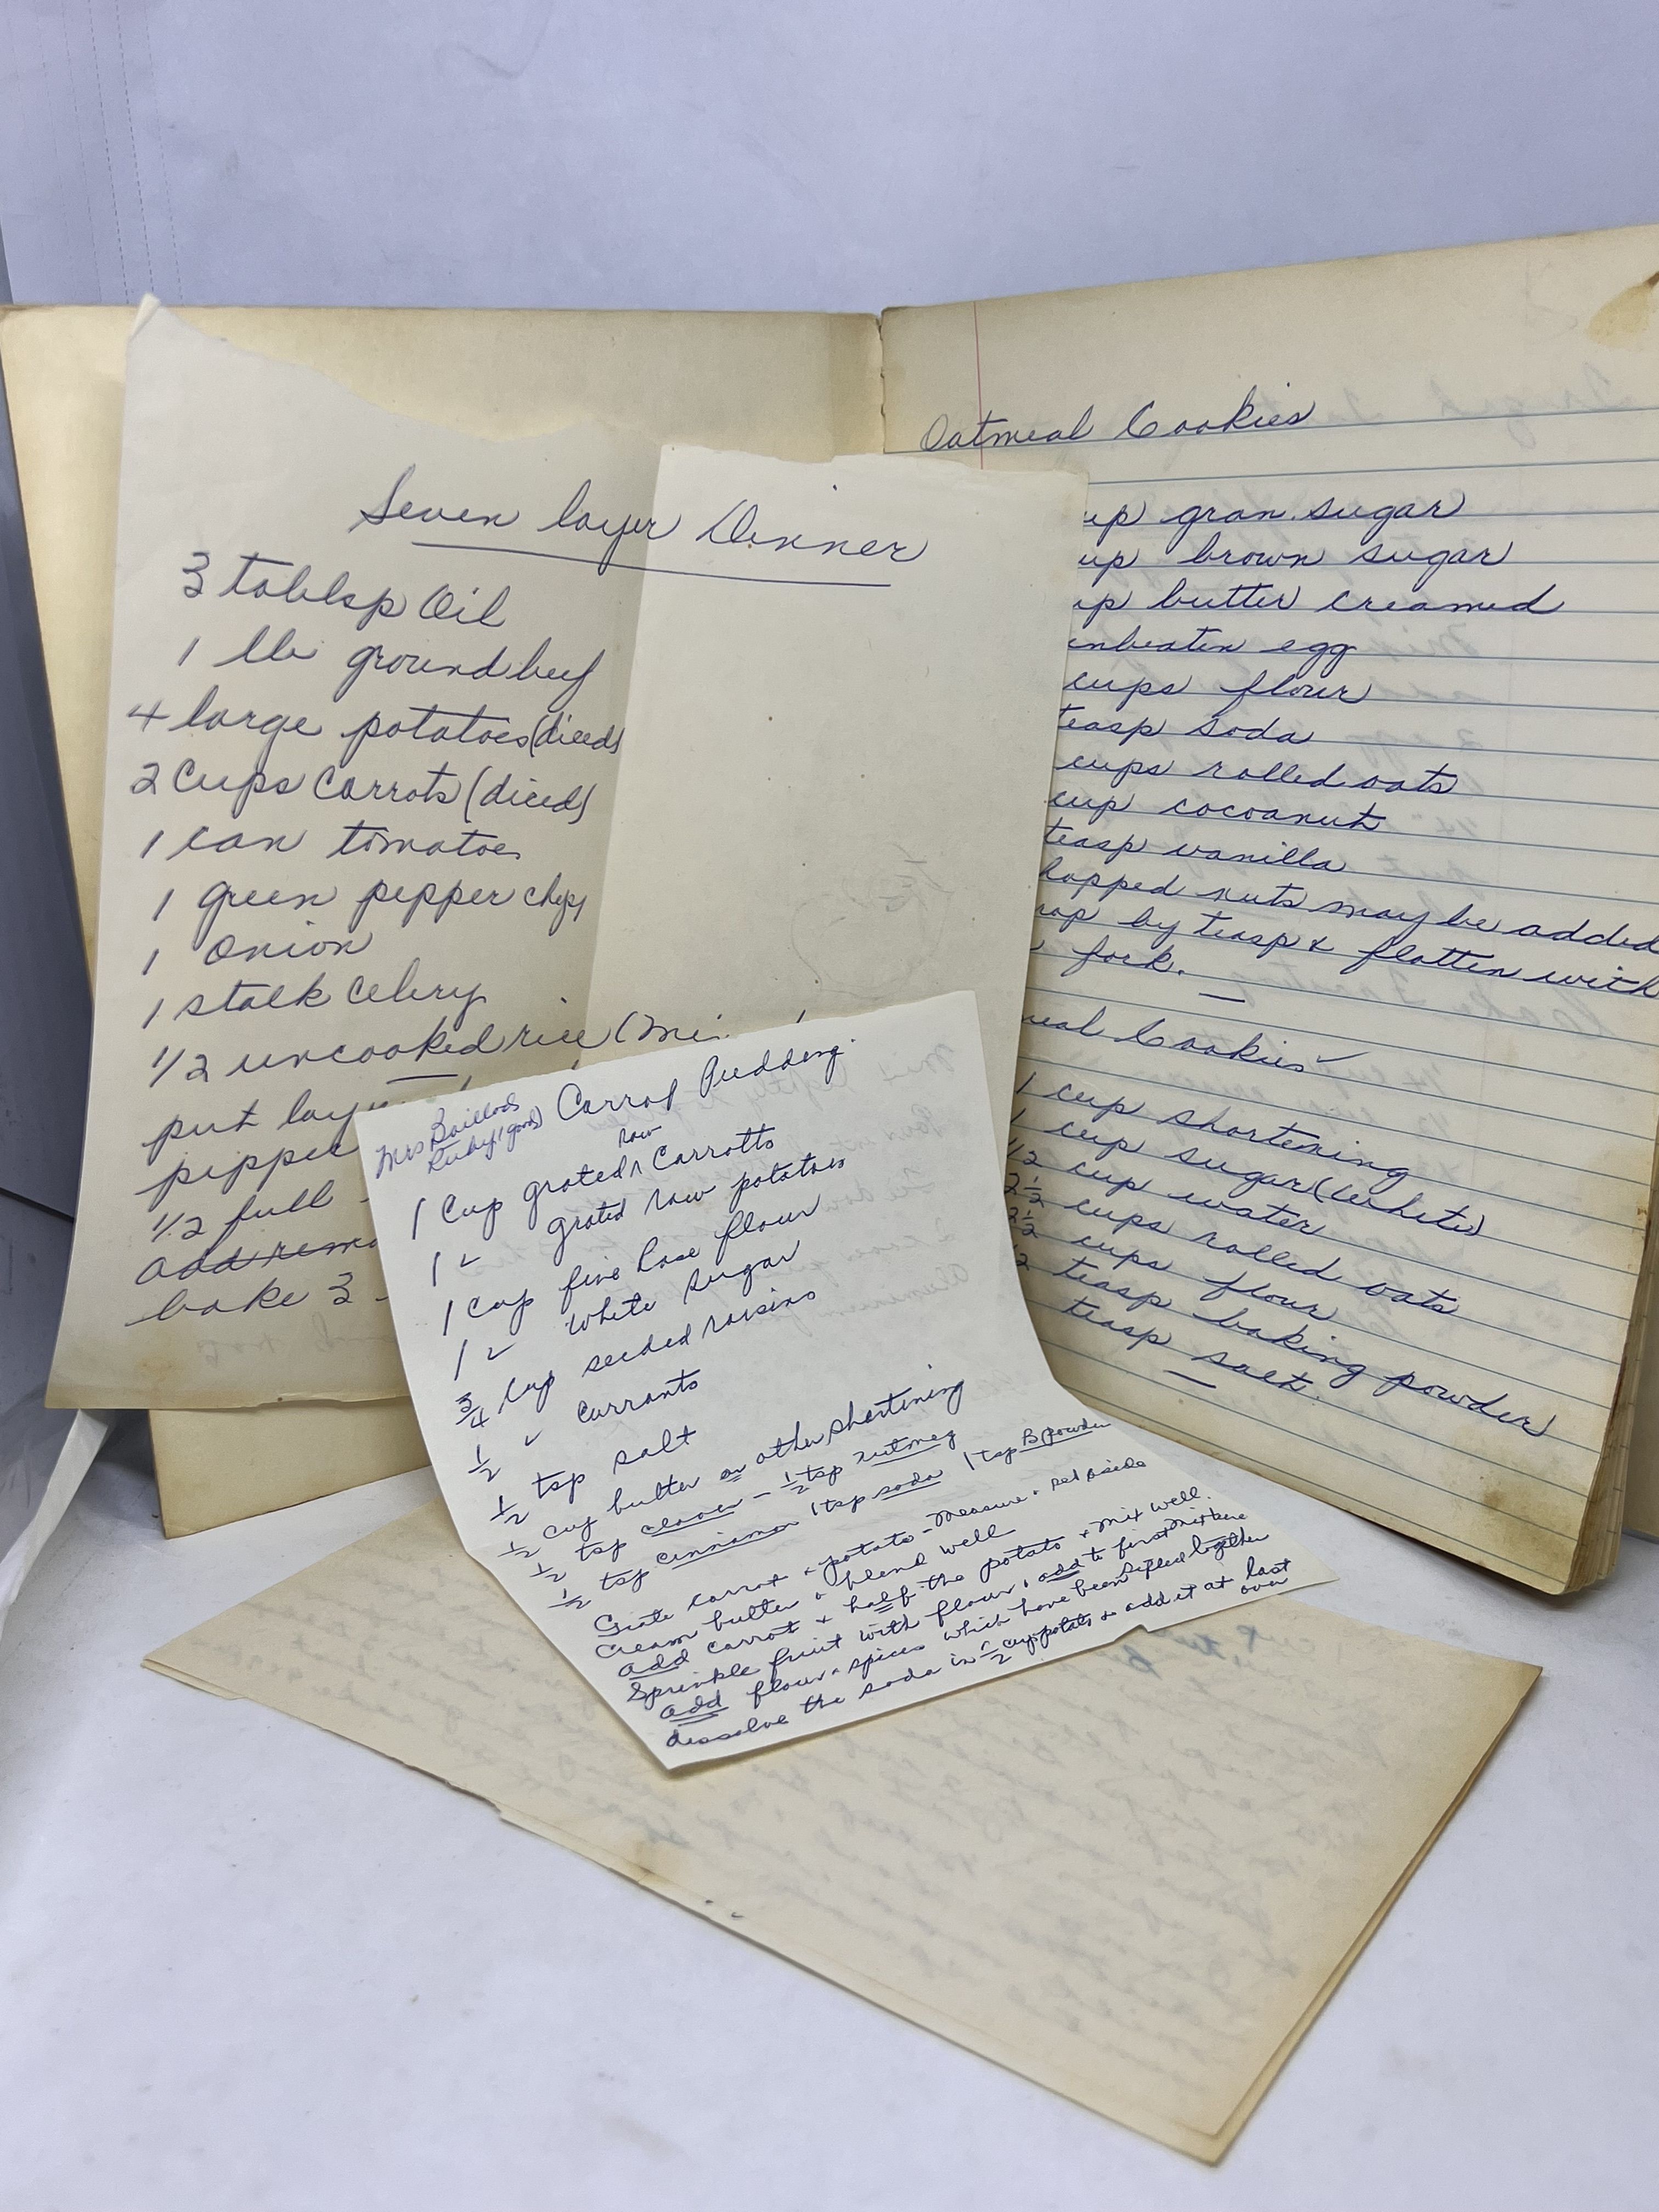 Seven layer Dinner
3 tablsp Oil
1 lb ground beef
4 large potatoes (diced)
2 Cups Carrots (diced)
1 can tomatoes
1 green pepper
1 onion
1 stalk Celery
1/2 uncooked rice
put
1/2 full
add
bake 3
Mrs
Carrot Pudding
raw
1 Cup grated Carrotts
1 " grated raw potatoes
1 cup fine flour
1 " White Sugar
3/4 Cup seeded raisins
1/2 " currants
1/2 tsp salt
1/2 cup butter or other shortening
1/2 tsp cloves - 1/2 tsp nutmeg
1/2 tsp cinnamon 1 tsp soda 1 tsp B powder
Grate carrot + potato - measure + set aside
Cream butter + blend well
add carrot + half the potato + mix well.
Sprinkle fruit with flour + add to first mixture
add flour + spices which have been sifted together
dissolve the soda in 1/2 cup potato + add it at last
Oatmeal Cookies
gran. sugar
brown sugar
butter creamed
egg
cups flour
teasp soda
cups rolled oats
cup cocoanut
teasp vanilla
nuts may be added
by teasp & flatten with
fork.
Cookies
1 cup shortening
1 cup sugar (white)
1/2 cup water
2 1/2 cups rolled oats
2 1/2 cups flour
teasp baking powder
teasp salt.